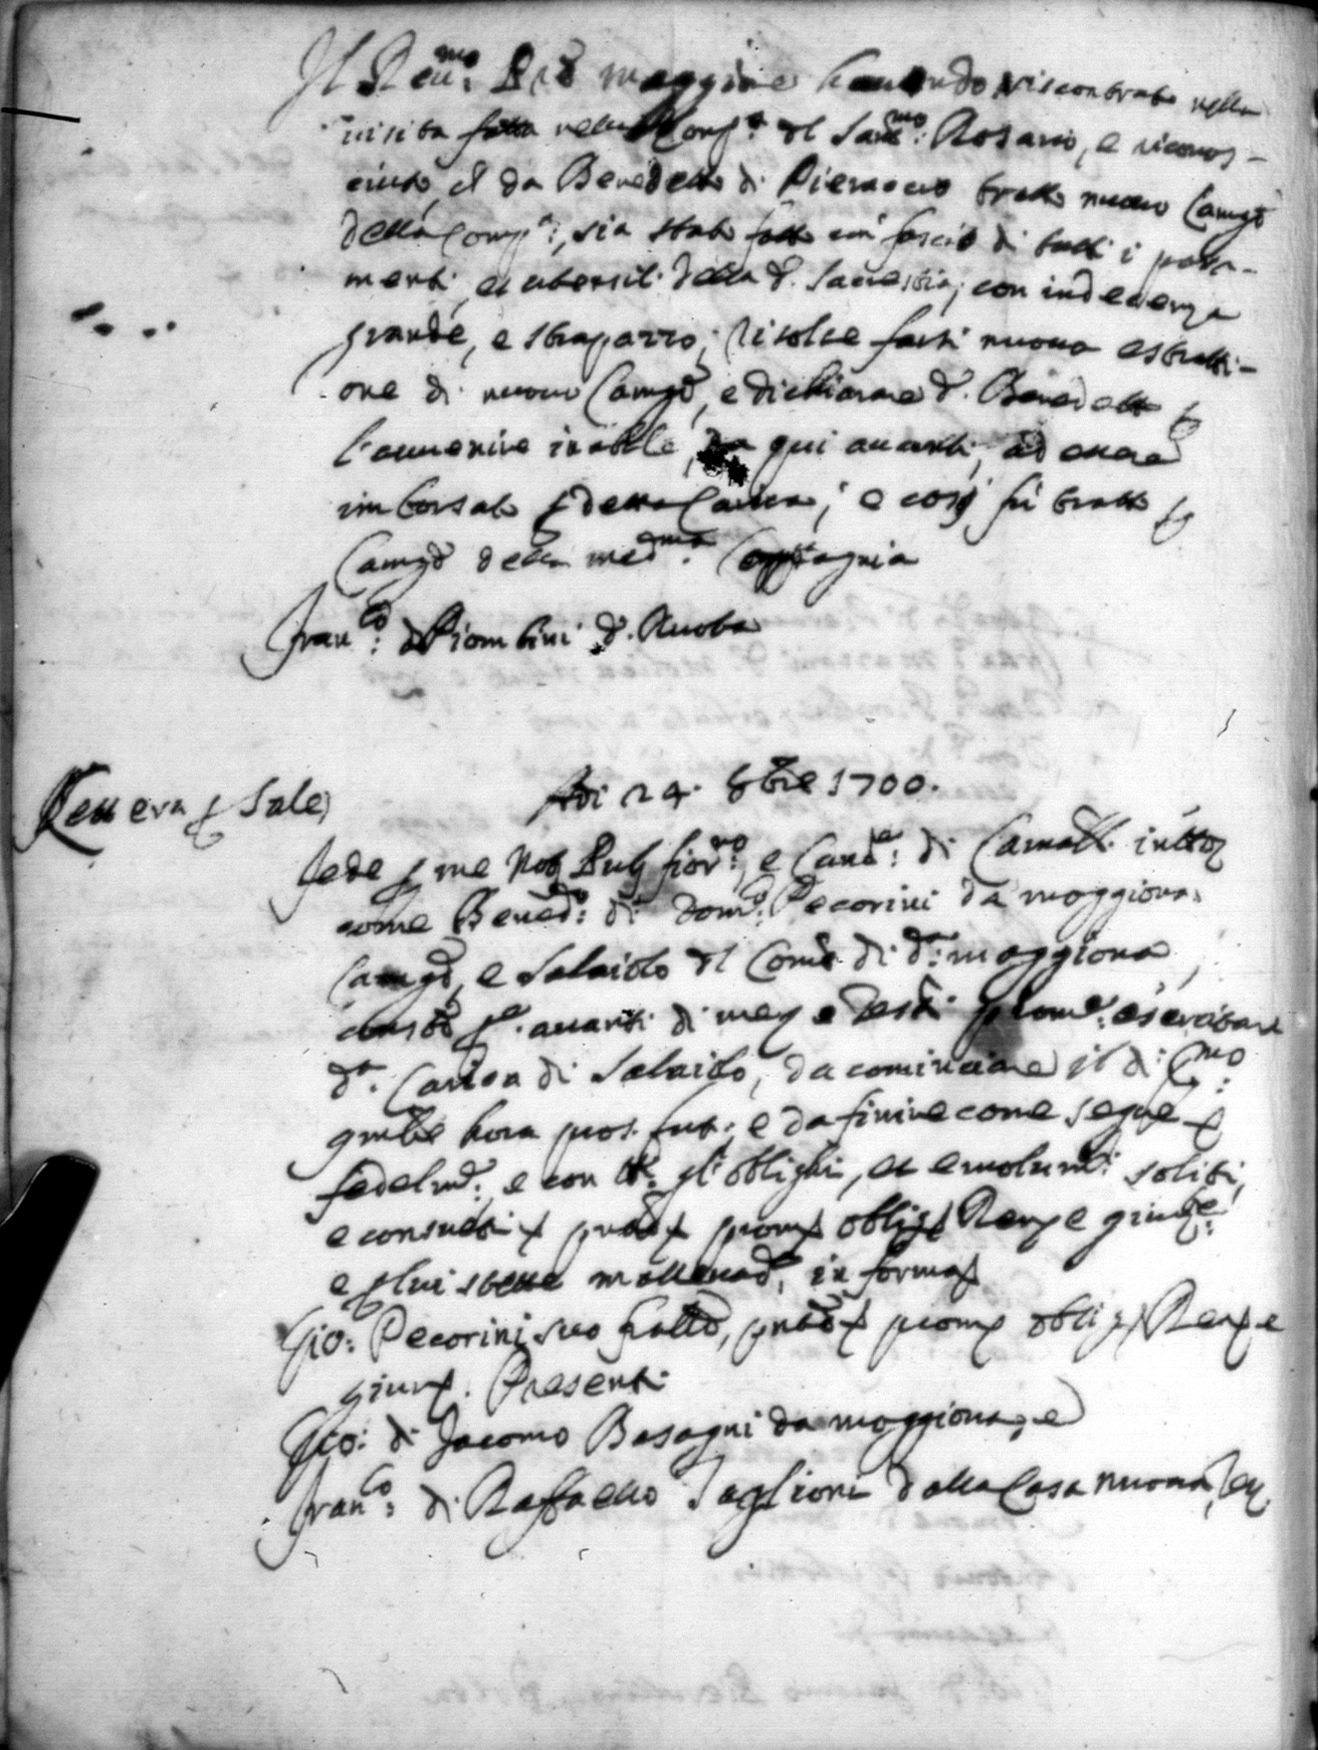 Il Reu.mo P. maggiore hauendo riscontrato nella
uisita fatta nella Comp.a del San.mo: Rosario, e riconos-
ciuto, che da Benedetto di Pieraccio tratto nuouo Camgo
della Comp.a:, sia stato fatto un fascio di tutti i para-
menti, et utensili della d. Sacrestia, con indecenza
grande, e strapazzo, Risolse farsi nuoua estratti-
one di nuouo Camgo, e dichiarare d. Benedetto p
l'auuenire inabile, da qui auanti, ad essere
imborsato p detta Carica; e così fù tratto p
Camgo della med.ma: Compagnia
Fran.co: Piombini d. Ruota
Adi 24. 8bre 1700.
Canoua p Sale
Fede p me Not Pub fior.no: e Canc.e: di Camald. infro
come Bened.o: di Dom.o: Pecorini da moggiona
Camgo, e Salaiolo del Come di d.a: moggiona,
constto p.e auanti di me e Testi prome: esercitare
d.a Carica di Salaiolo, da cominciare il di: p.mo:
gnbre hora pros. fut: e da finire come segue p
fedelm.e:, e con tt.i gl'oblighi, et emolum.ti: soliti,
e consueti p prede prome oblig Renz e giur.e:
e p lui stette malleuad.e in forma
Gio: Pecorini suo fratello, prede prome oblig Renz e
giur. Presenti
Gio: di Jacomo Basagni da moggiona, e
Fran.co: di Raffaello Taglioni dalla Casa nuoua, Tes.